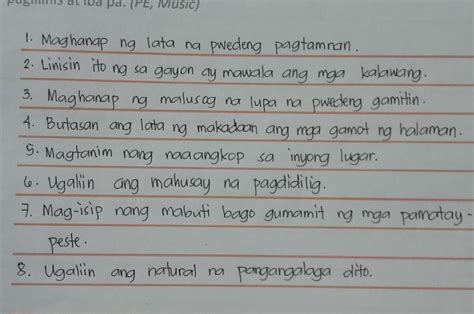 paglilinis at iba pa. (PE, Music)
1. Maghanap ng lata na pwedeng pagtamnan.
2. Linisin ito ng sa gayon ay mawala ang mga kalawang.
3. Maghanap ng malusog na lupa na pwedeng gamitin.
4. Butasan ang lata ng makadaan ang mga gamot ng halaman.
5. Magtanim nang naaangkop sa inyong lugar.
6. Ugaliin ang mahusay na pagdidilig.
7. Mag-isip nang mabuti bago gumamit ng mga pamatay-
peste.
8. Ugaliin ang natural na pangangalaga dito.